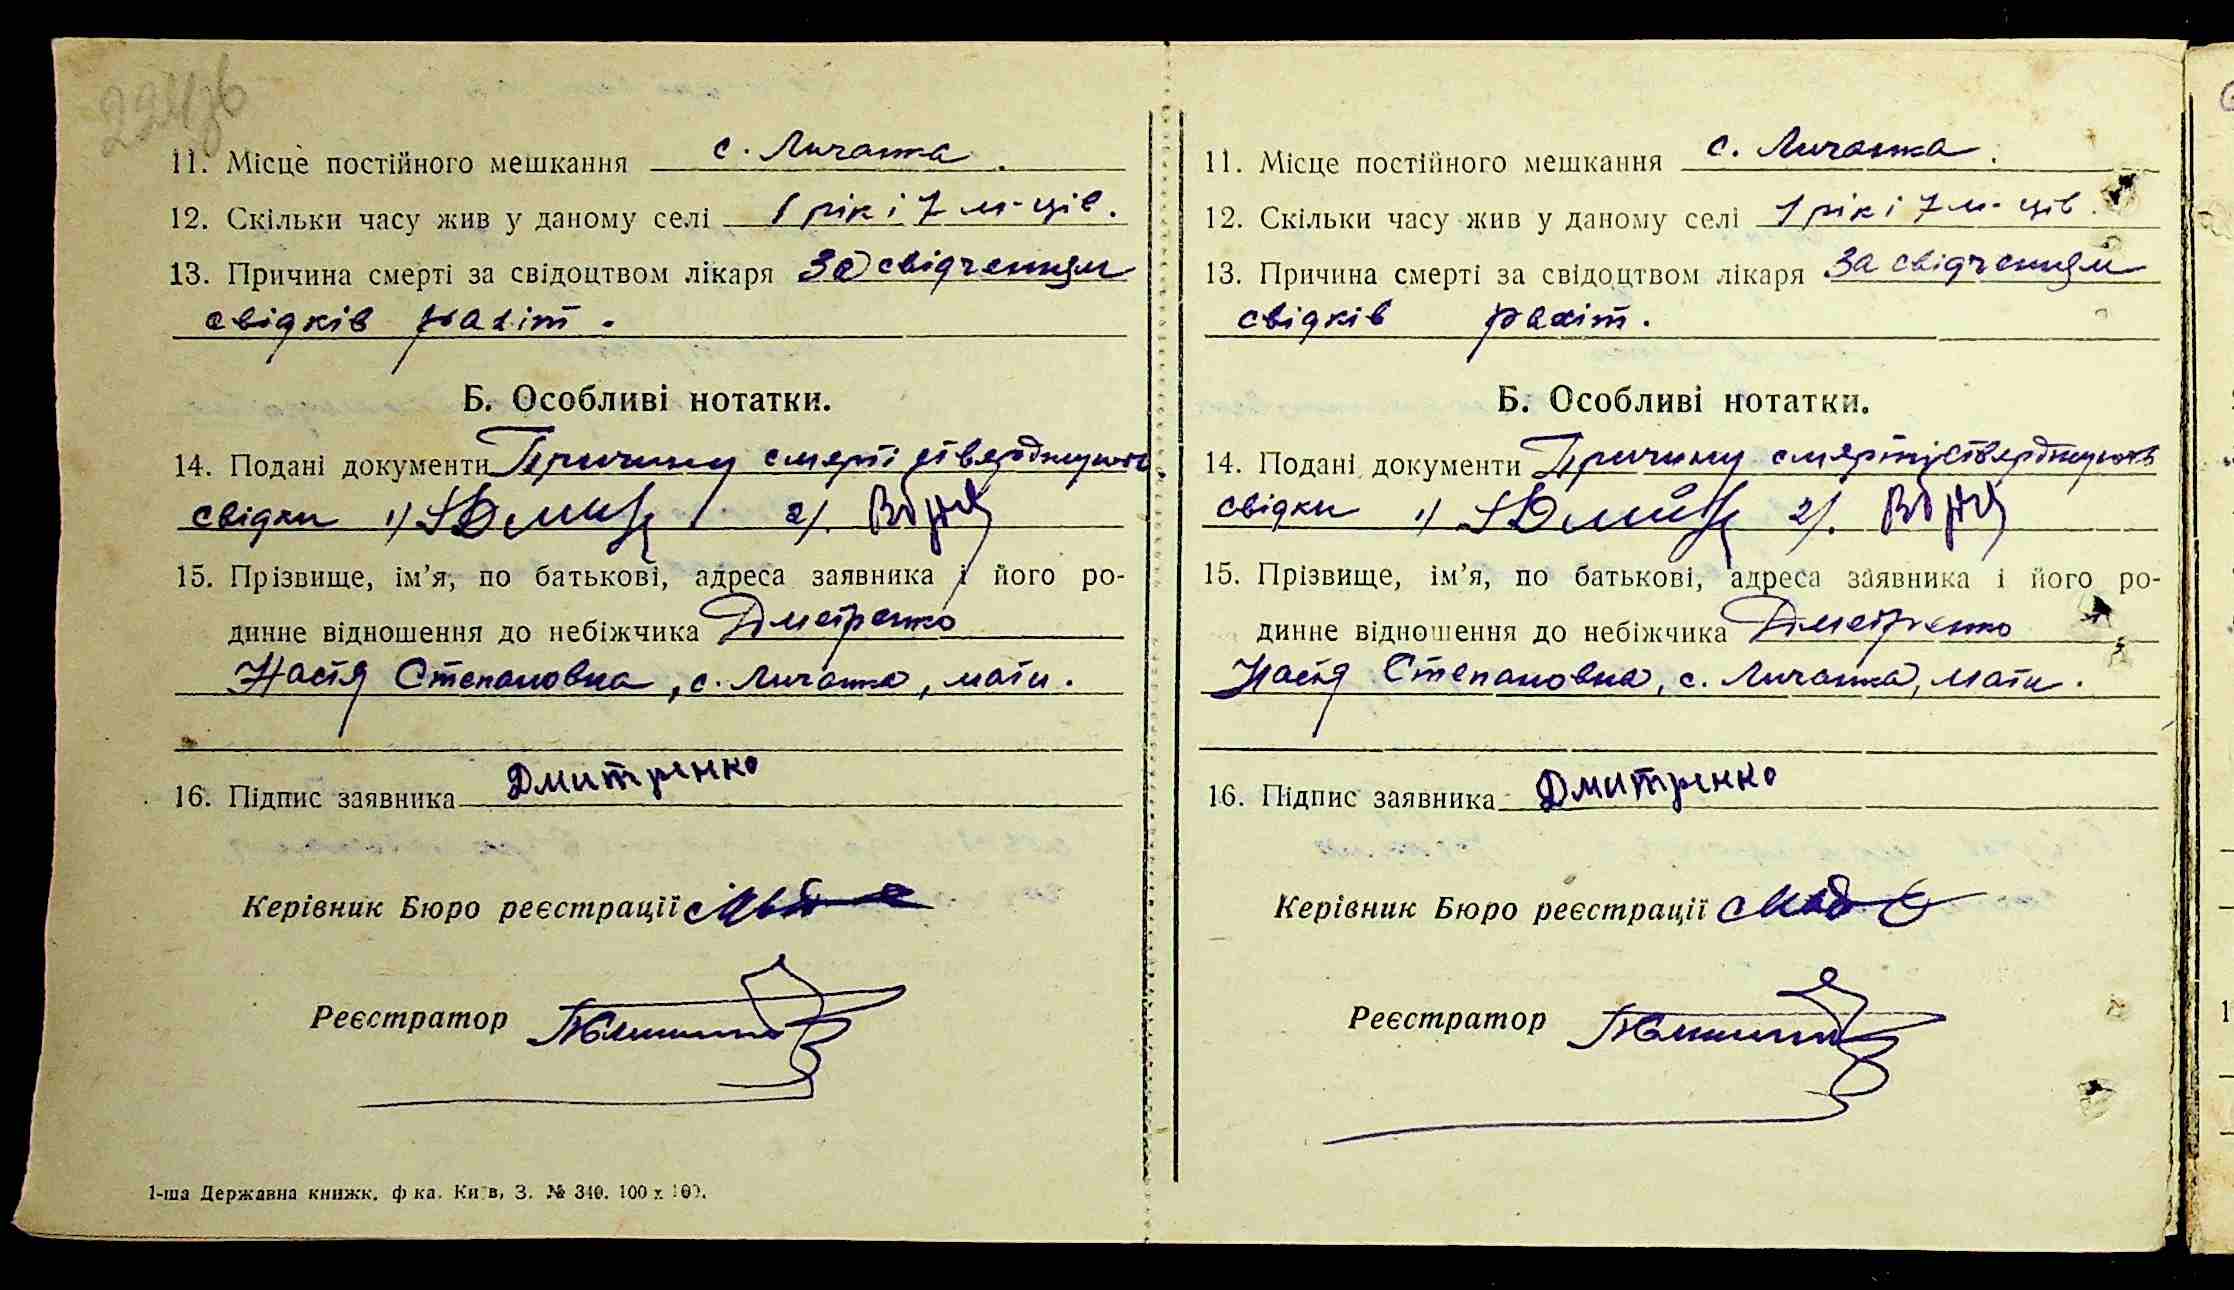 11. Місце постійного мешкання с. Личанка.
12. Скільки часу жив у даному селі 1 рік і 7 м-ців.
13. Причина смерті за свідоцтвом лікаря За свідченням
свідків рахіт.
Б. Особливі нотатки.
14. Подані документи Причину смерті стверджують
свідки 1) 2).
15. Прізвище, ім’я, по батькові, адреса заявника і його ро-
динне відношення до небіжчика Дметренко
Настя Степановна, с. Личанка, мати.
16. Підпис заявника Дмитренко
Керівник Бюро реєстрації
Реєстратор
1-ша Державна книжк. ф-ка. Київ, З. № 340. 100 x 100.
11. Місце постійного мешкання с. Личанка.
12. Скільки часу жив у даному селі 1 рік і 7 м-ців.
13. Причина смерті за свідоцтвом лікаря За свідченням
свідків рахіт.
Б. Особливі нотатки.
14. Подані документи Причину смерті стверджують
свідки 1) 2).
15. Прізвище, ім’я, по батькові, адреса заявника і його ро-
динне відношення до небіжчика Дметренко
Настя Степановна, с. Личанка, мати.
16. Підпис заявника Дмитренко
Керівник Бюро реєстрації
Реєстратор